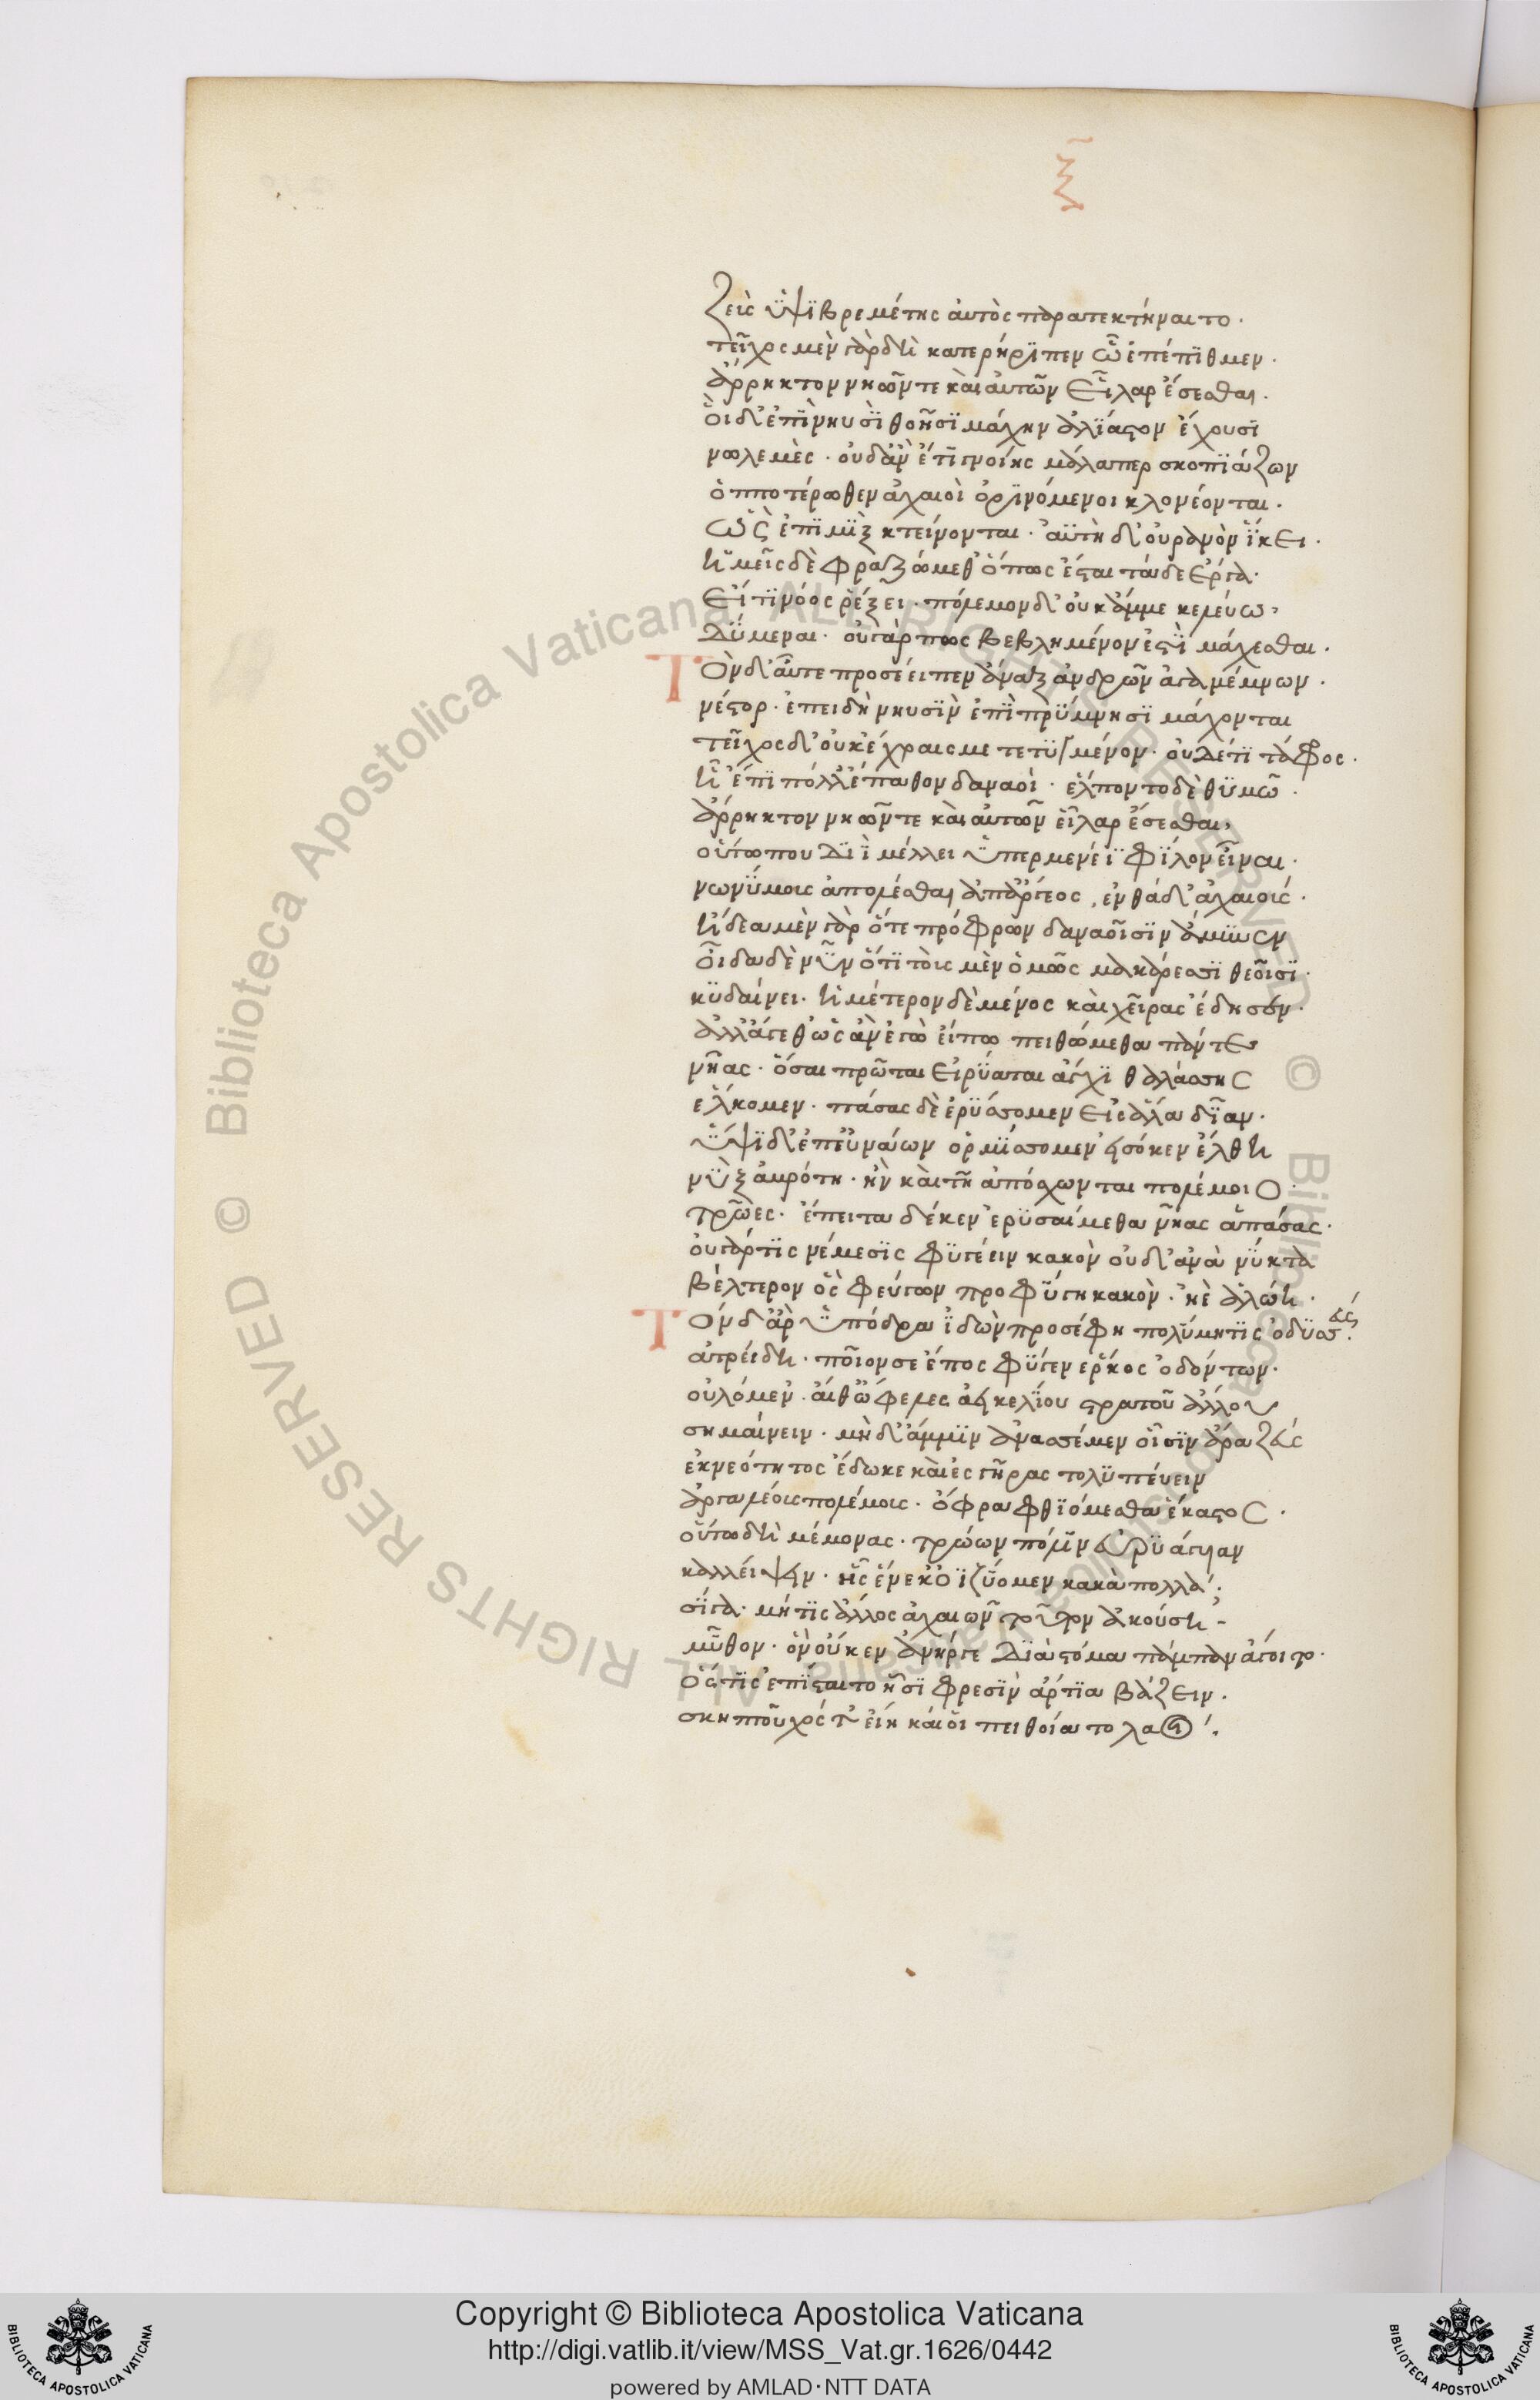 ξ
Ζεὺς ὑψιβρεμέτης αὐτὸς παρατεκτήναιτο.
τεῖχος μὲν γὰρ δὴ κατερήριπεν ὧ ἐπέπιθμεν.
ἄρρηκτον νηῶν τε καὶ αὐτῶν εἶλαρ ἔσεσθαι.
οἱ δ' ἐπὶ νηυσὶ θοῆσι μάχην ἀλίαστον ἔχουσι
νωλεμὲς. οὐδ' ἂν ἔτι γνοίης μάλα περ σκοπιάζων
ὁπποτέρωθεν ἀχαιοὶ ὀρινόμενοι κλονέονται.
ὡς ἐπιμὶξ κτείνονται. ἀϋτὴ δ' οὐρανὸν ἵκει.
ἡμεῖς δὲ φραζώμεθ' ὅπως ἔσται τάδε ἔργα.
εἴ τι νόος ῥέξει. πόλεμον δ' οὐκ ἄμμε κελεύω,
δύμεναι. οὐ γάρ πως βεβλημένον ἐστὶ μάχεσθαι.
Τὸν δ' αὖτε προσέειπεν ἄναξ ἀνδρῶν ἀγαμέμνων.
νέστορ. ἐπειδὴ νηυσὶν ἐπὶ πρύμνησι μάχονται
τεῖχος δ' οὐκ ἔχραισμε τετυγμένον. οὐδέ τι τάφρος.
ἧ ἔπι πόλλ' ἔπαθον δαναοί. ἔλποντο δὲ θυμῶ.
ἄρρηκτον νηῶν τε καὶ αὐτῶν εἶλαρ ἔσεσθαι,
οὕτω που Διῒ μέλλει ὑπερμενέϊ φίλον εἶναι.
νωνύμοις ἀπολέσθαι ἀπ' ἄργεος, ἐνθάδ' ἀχαιούς.
ἤδεα μὲν γὰρ ὅτε πρόφρων δαναοῖσιν ἄμυνεν
οἶδα δὲ νῦν ὅτι τοὺς μὲν ὁμῶς μακάρεσσι θεοῖσι.
κυδαίνει. ἡμέτερον δὲ μένος καὶ χεῖρας ἔδησεν.
ἀλλ' ἄγεθ' ὡς ἂν ἐγὼ εἴπω πειθώμεθα πάντες
νῆας. ὅσαι πρῶται εἰρύαται ἄγχι θαλάσσης
ἕλκομεν. πάσας δὲ ἐρύσσομεν εἰς ἅλα δῖαν.
ὕψι δ' ἐπ' εὐνάων ὁρμίσσομεν εἰσόκεν ἔλθη
νὺξ ἀβρότη. ἢν καὶ τῆ ἀπόσχωνται πολέμοιο.
τρῶες. ἔπειτα δέ κεν ἐρυσαίμεθα νῆας ἁπάσας.
οὐ γάρ τις νέμεσις φυγέειν κακὸν οὐδ' ἀνὰ νύκτα
βέλτερον ὃς φεύγων προφύγη κακὸν. ἠὲ ἁλώη.
Τὸν δ' ἄρ' ὑπόδρα ἰδὼν προσέφη πολύμητις ὀδυσσεύς.
ἀτρείδη. ποῖόν σε ἔπος φύγεν ἕρκος ὀδόντων.
οὐλόμεν'. αἴθ' ὤφελες ἀεικελίου στρατοῦ ἄλλου
σημαίνειν. μὴ δ' ἄμμιν ἀνασσέμεν οἷσιν ἄρα ζεύς
ἐκ νεότητος ἔδωκε καὶ ἐς γῆρας τολυπεύειν
ἀργαλέους πολέμους. ὄφρα φθιόμεσθα ἕκαστος.
οὕτω δὴ μέμονας. τρώων πόλιν εὐρυάγυιαν
καλλείψειν. ἧς εἵνεκ' ὀϊζύομεν κακὰ πολλά.
σίγα. μή τις ἄλλος ἀχαιῶν τοῦτον ἀκούση
μῦθον. ὃν οὔ κεν ἀνήρ γε διὰ στόμα πάμπαν ἄγοιτο.
ὅς τις ἐπίσταιτο ἧσι φρεσὶν ἄρτια βάζειν.
σκηπτοῦχός τ' εἴη καί οἱ πειθοίατο λαοί.
Copyright © Biblioteca Apostolica Vaticana
http://digi.vatlib.it/view/MSS_Vat.gr.1626/0442
powered by AMLAD·NTT DATA
BIBLIOTECA APOSTOLICA VATICANA
BIBLIOTECA APOSTOLICA VATICANA
© Biblioteca Apostolica Vaticana ALL RIGHTS RESERVED © Biblioteca Apostolica Vaticana ALL RIGHTS RESERVED